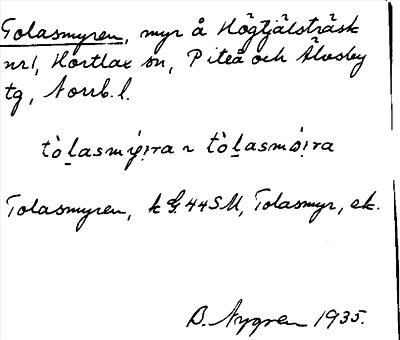 Tolasmyren, myr å Högtjälsträsk
nr 1, Hortlax sn, Piteå och Älvsby
tg, Norrb. l.
tò̀lasmýi̯ra ~ tò̀lasmǿi̯ra
Tolasmyren, k G. 44 SU, Tolasmyr, ek.
B. Nygren 1935.